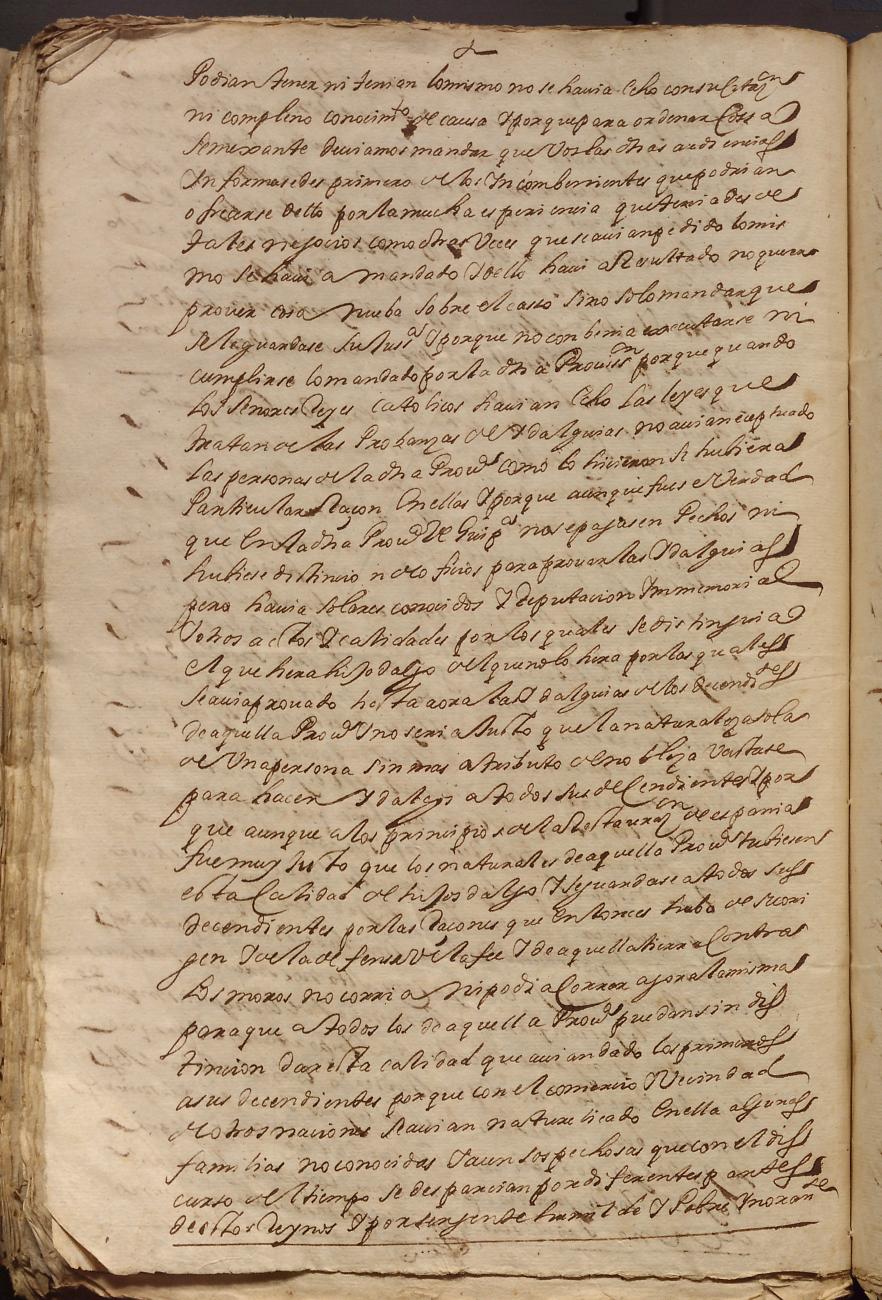 Podian tener ni tenian lo mismo no se havia echo con su çitaçon
ni compleno conocimto de causa Y porque para ordenar Cossa
semexante deviamos mandar que Vos las dhas audiencias
Ynformasedes primero de los Yncombenientes que podrian
ofrecerse dello por la mucha espiriencia que teniades de
tales negocios como otras Veces que se avian pedido lo mis
mo se havia mandado Y dello havia Resultado no querer
prover cosa nueba sobre el casso sino solo mandar que
se le guardase su Justa Y porque no conbenia executarse ni
cumplirse lo mandado por la dha Provisson porque quando
Los Senores Reyes catolicos havian echo las leyes que
tratan de las Probanzas de Ydalguias no avian eceptuado
las personas de la dha Prova como lo hicieron si hubiera
Particular Raçon En ellas Y porque aunque fuese Verdad
que En la dha Prova de Guipa no se pagasen Pechos ni
hubiese distincio n de oficios para provar las Ydalguias
pero havia solares conocidos Y Reputacion Ynmemorial
Y otros actos Y calidades por los quales se distinguia
el que hera hijodalgo del que no lo hera por las quales
se avia provado hasta aora las Ydalguias de los decendientes
de aquella Prova Y no seria Justo que la naturaleza sola
de Una persona sin mas atributo de nobleza Vastase
para hacer Ydalgos a todos sus deCendientes Y por
que aunque a los principios de la Restauraçon de espania
fue muy Justo que los naturales de aquella Prova tubiesen
esta Calidad de hijosdalgo Y se guardase a todos sus
decendientes por las Raçones que Entonces hubo de su ori
gen Y de la defensa de la fee Y de aquella tierra Contra
Los moros no corria ni podia Correr agora la misma
para que a todos los de aquella Prova puedan sin dis
tincion dar esta calidad que avian dado los primeros
a sus decendientes porque con el comercio Y Vecindad
de otras naciones se avian naturelicado En ella algunas
familias no conocidas Y aun sospechosas que con el dis
curso del tiempo se desparcian por diferentes partes
destos Reynos Y por ser gente humilde Y Pobre Ynorante